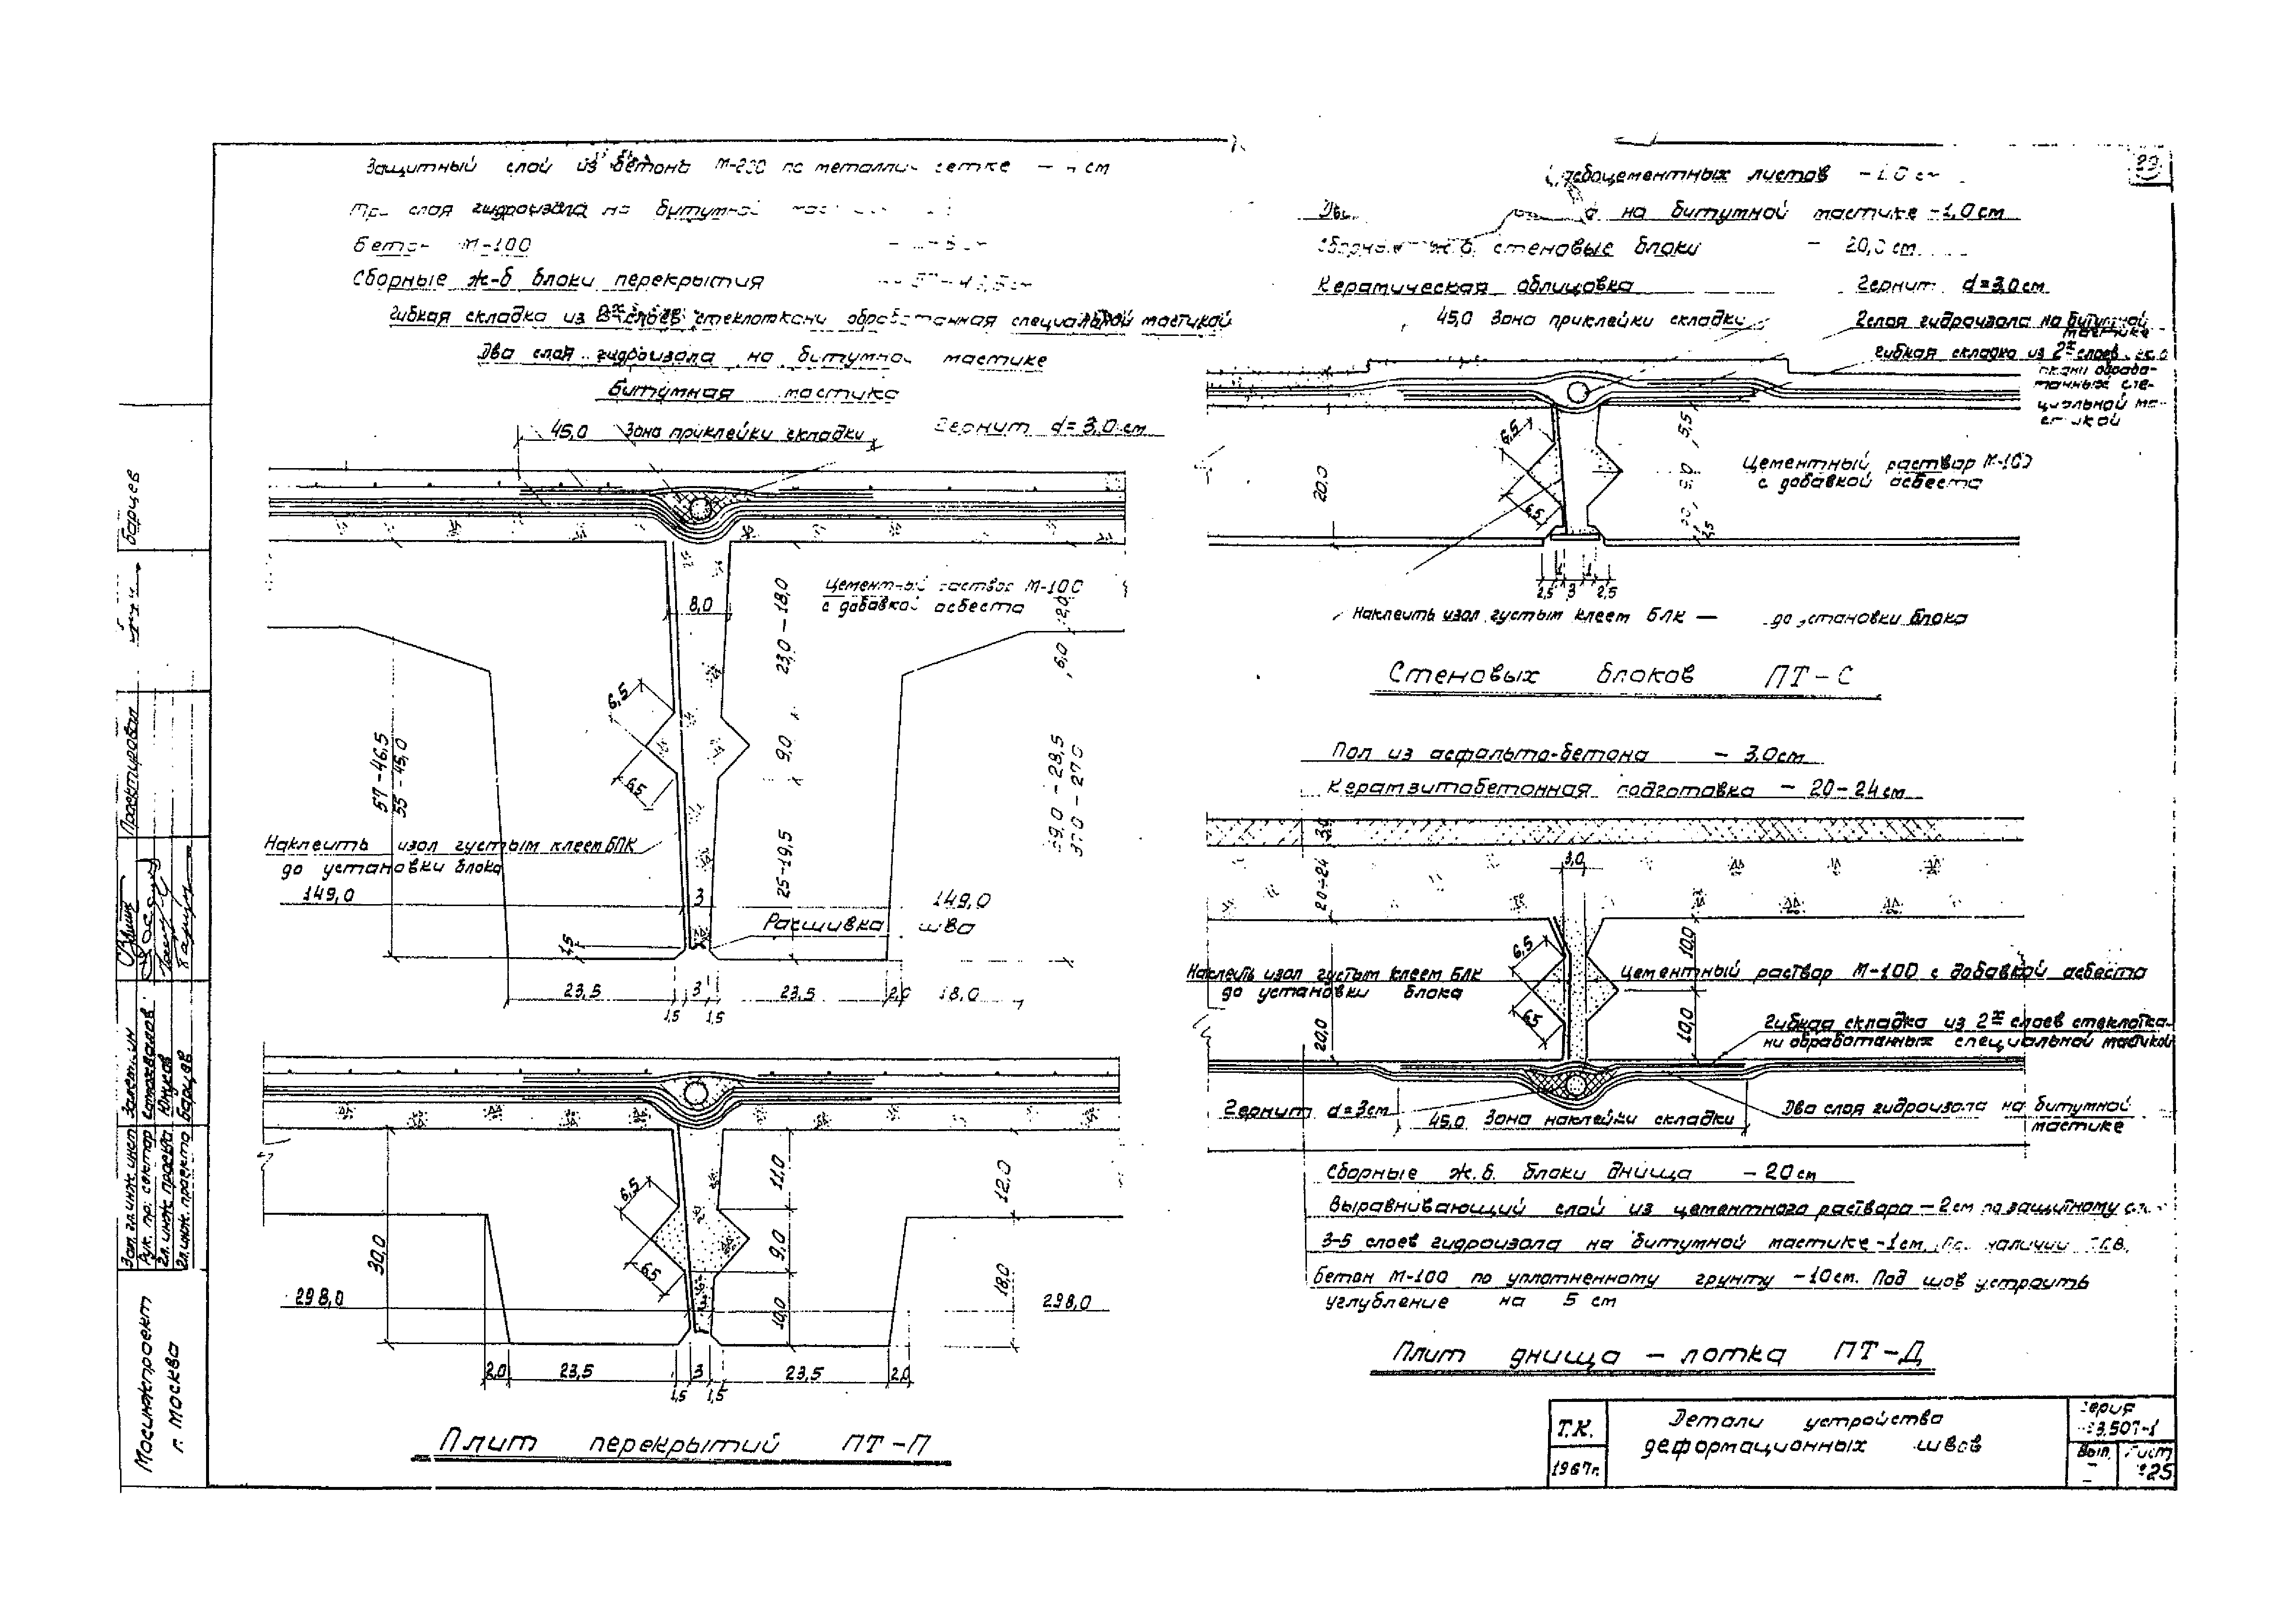 29
Защитный слой из бетона М-200 по металлич сетке - см
Три слоя гидроизола на битумной
Бетон М-100
Сборные ж-б блоки перекрытия
Гибкая складка из 2х слоев стеклоткани обработанная специальной мастикой
Два слоя гидроизола на битумной мастике
Битумная мастика
45,0 Зона приклейки складки
Гернит d=3,0 см
8,0
Цементный раствор М-100
с добавкой асбеста
23,0-18,0
9,0
25-19,5
6,5
6,5
57-46,5
55-45,0
6,0
37,0-27,0
Наклеить изол густым клеем БПК
до установки блока
149,0
3
149,0
Расшивка шва
1,5
23,5
3
23,5
2,0
18,0
1,5
1,5
6,5
6,5
11,0
9,0
10,0
12,0
18,0
30,0
298,0
298,0
2,0
23,5
3
23,5
2,0
1,5
1,5
Плит перекрытий ПТ-П
цементных листов
на битумной мастике -1,0 см
Сборные ж.б. стеновые блоки - 20,0 см
Керамическая облицовка
Гернит d=3,0 см
45,0 Зона приклейки складки
2 слоя гидроизола на битумной
мастике
Гибкая складка из 2х слоев
ткани обрабо-
танных спе-
циальной ма-
стикой
6,5
6,5
5,5
9,0
20,0
2,5
Цементный раствор М-100
с добавкой асбеста
1 1
2,5 3 2,5
Наклеить изол густым клеем БЛК — до установки блока
Стеновых блоков ПТ-С
Пол из асфальто-бетона - 3,0 см
Керамзитобетонная подготовка - 20-24 см
3,0
20÷24
3,0
6,5
6,5
10,0
10,0
20,0
Наклеить изол густым клеем БЛК
до установки блока
Цементный раствор М-100 с добавкой асбеста
Гибкая складка из 2х слоев стеклотка-
ни обработанных специальной мастикой
Гернит d=3см
45,0 Зона наклейки складки
Два слоя гидроизола на битумной
мастике
Сборные ж.б. блоки днища - 20 см
Выравнивающий слой из цементного раствора - 2 см по защитному
3-5 слоев гидроизола на битумной мастике -1 см. наличии
Бетон М-100 по уплотненному грунту -10 см. Под шов устроить
углубление на 5 см
Плит днища - лотка ПТ-Д
Т.К.
1967г.
Детали устройства
деформационных швов
Серия
3.507-1
Вып.
Лист
№25
Барцев
Проектировал
Зам. гл. инж. инст.
Рук. пр. сектор
Гл. инж. проекта Юнков
Гл. инж. проекта Барцев
Мосинжпроект
г. Москва